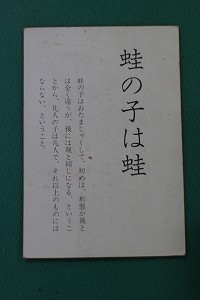 蛙の子は蛙
蛙の子はおたまじゃくしで、初めは、形態が親と
は全く違うが、後には親と同じになる、というこ
とから、凡人の子は凡人で、それ以上のものには
ならない、ということ。